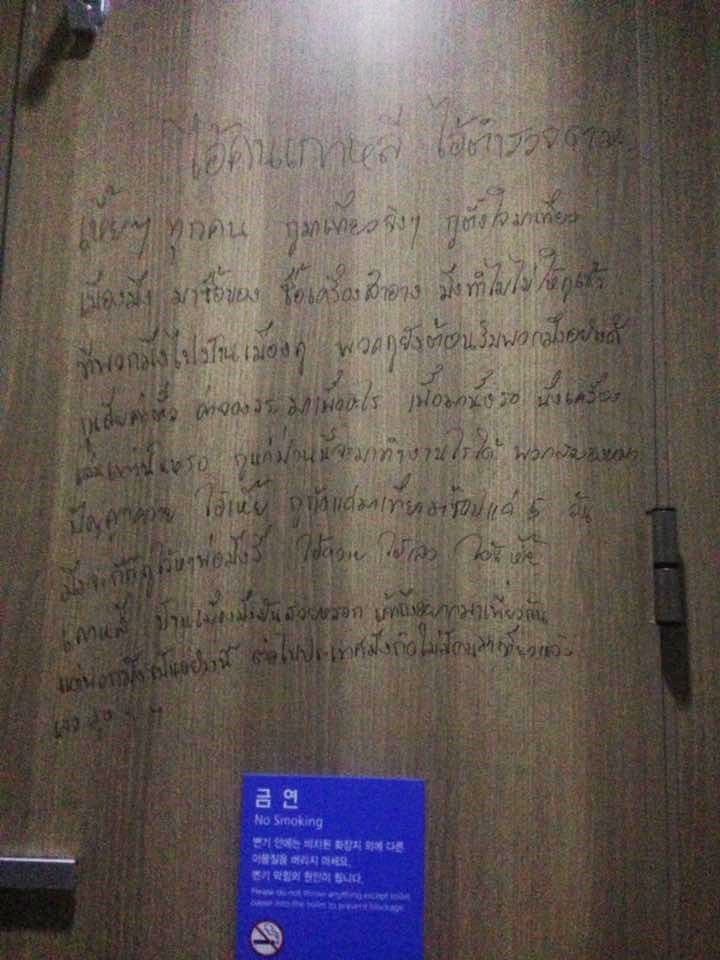 ไอ้คนเกาหลี ไอ้ตำรวจ
เหี้ยๆ ทุกคน กูมาเที่ยวจริงๆ กูตั้งใจมาเที่ยว
เมืองมึง มาซื้อของ ซื้อเครื่องสำอาง มึงทำไมไม่ให้กูเข้า
ทีพวกมึงไปบ้านเมืองกู พวกกูยังต้อนรับพวกมึงอย่างดี
กูเสียค่าตั๋ว มาเพื่ออะไร เพื่อมานั่งรอ นั่งเครื่อง
เล่นเท่านั้นหรอ กูแค่ จะมาทำงานไรได้ พวก
ปัญญาควาย ไอ้เหี้ย กูตั้งแต่มาเที่ยว แค่ 5 วัน
มึงจะกักกูไว้หาพ่อมึงรึ ไอ้ควาย ไอ้เลว ไอ้เหี้ย
เกาหลี บ้านเมืองมึงมันสวยหรอก เค้าถึงอยากมาเที่ยวกัน
แต่พวกมึงเป็นอย่างนี้ ต่อไปประเทศมึงก็ไม่มีคนมาเที่ยวแล้ว
เลวสุดๆๆ
금 연
No Smoking
변기 안에는 비치된 화장지 외에 다른
이물질을 버리지 마세요.
변기 막힘의 원인이 됩니다.
Please do not throw anything except toilet
paper into the toilet to prevent blockage.